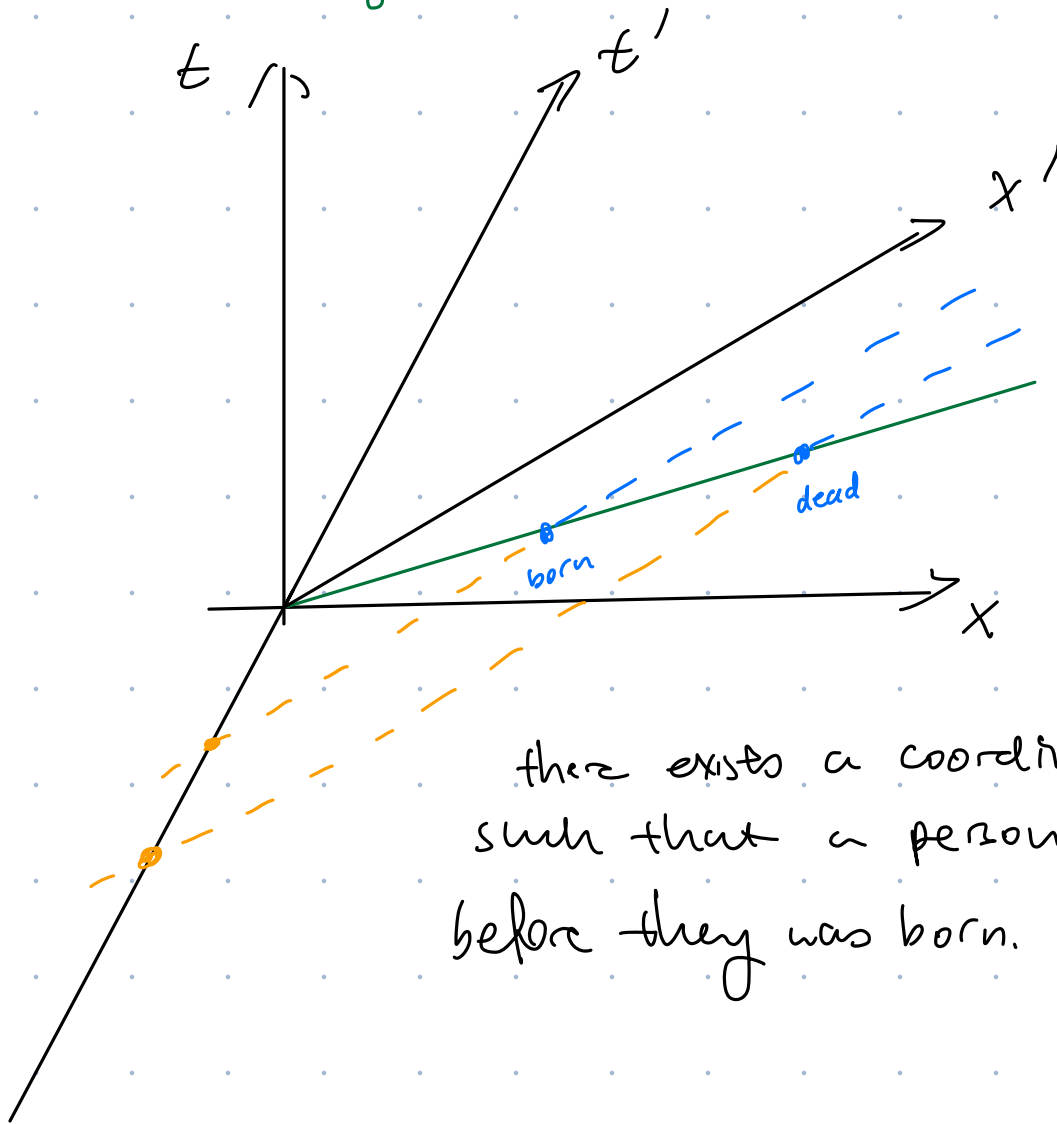 t
t'
x'
born
dead
x
there exists a coordi
such that a person
before they was born.